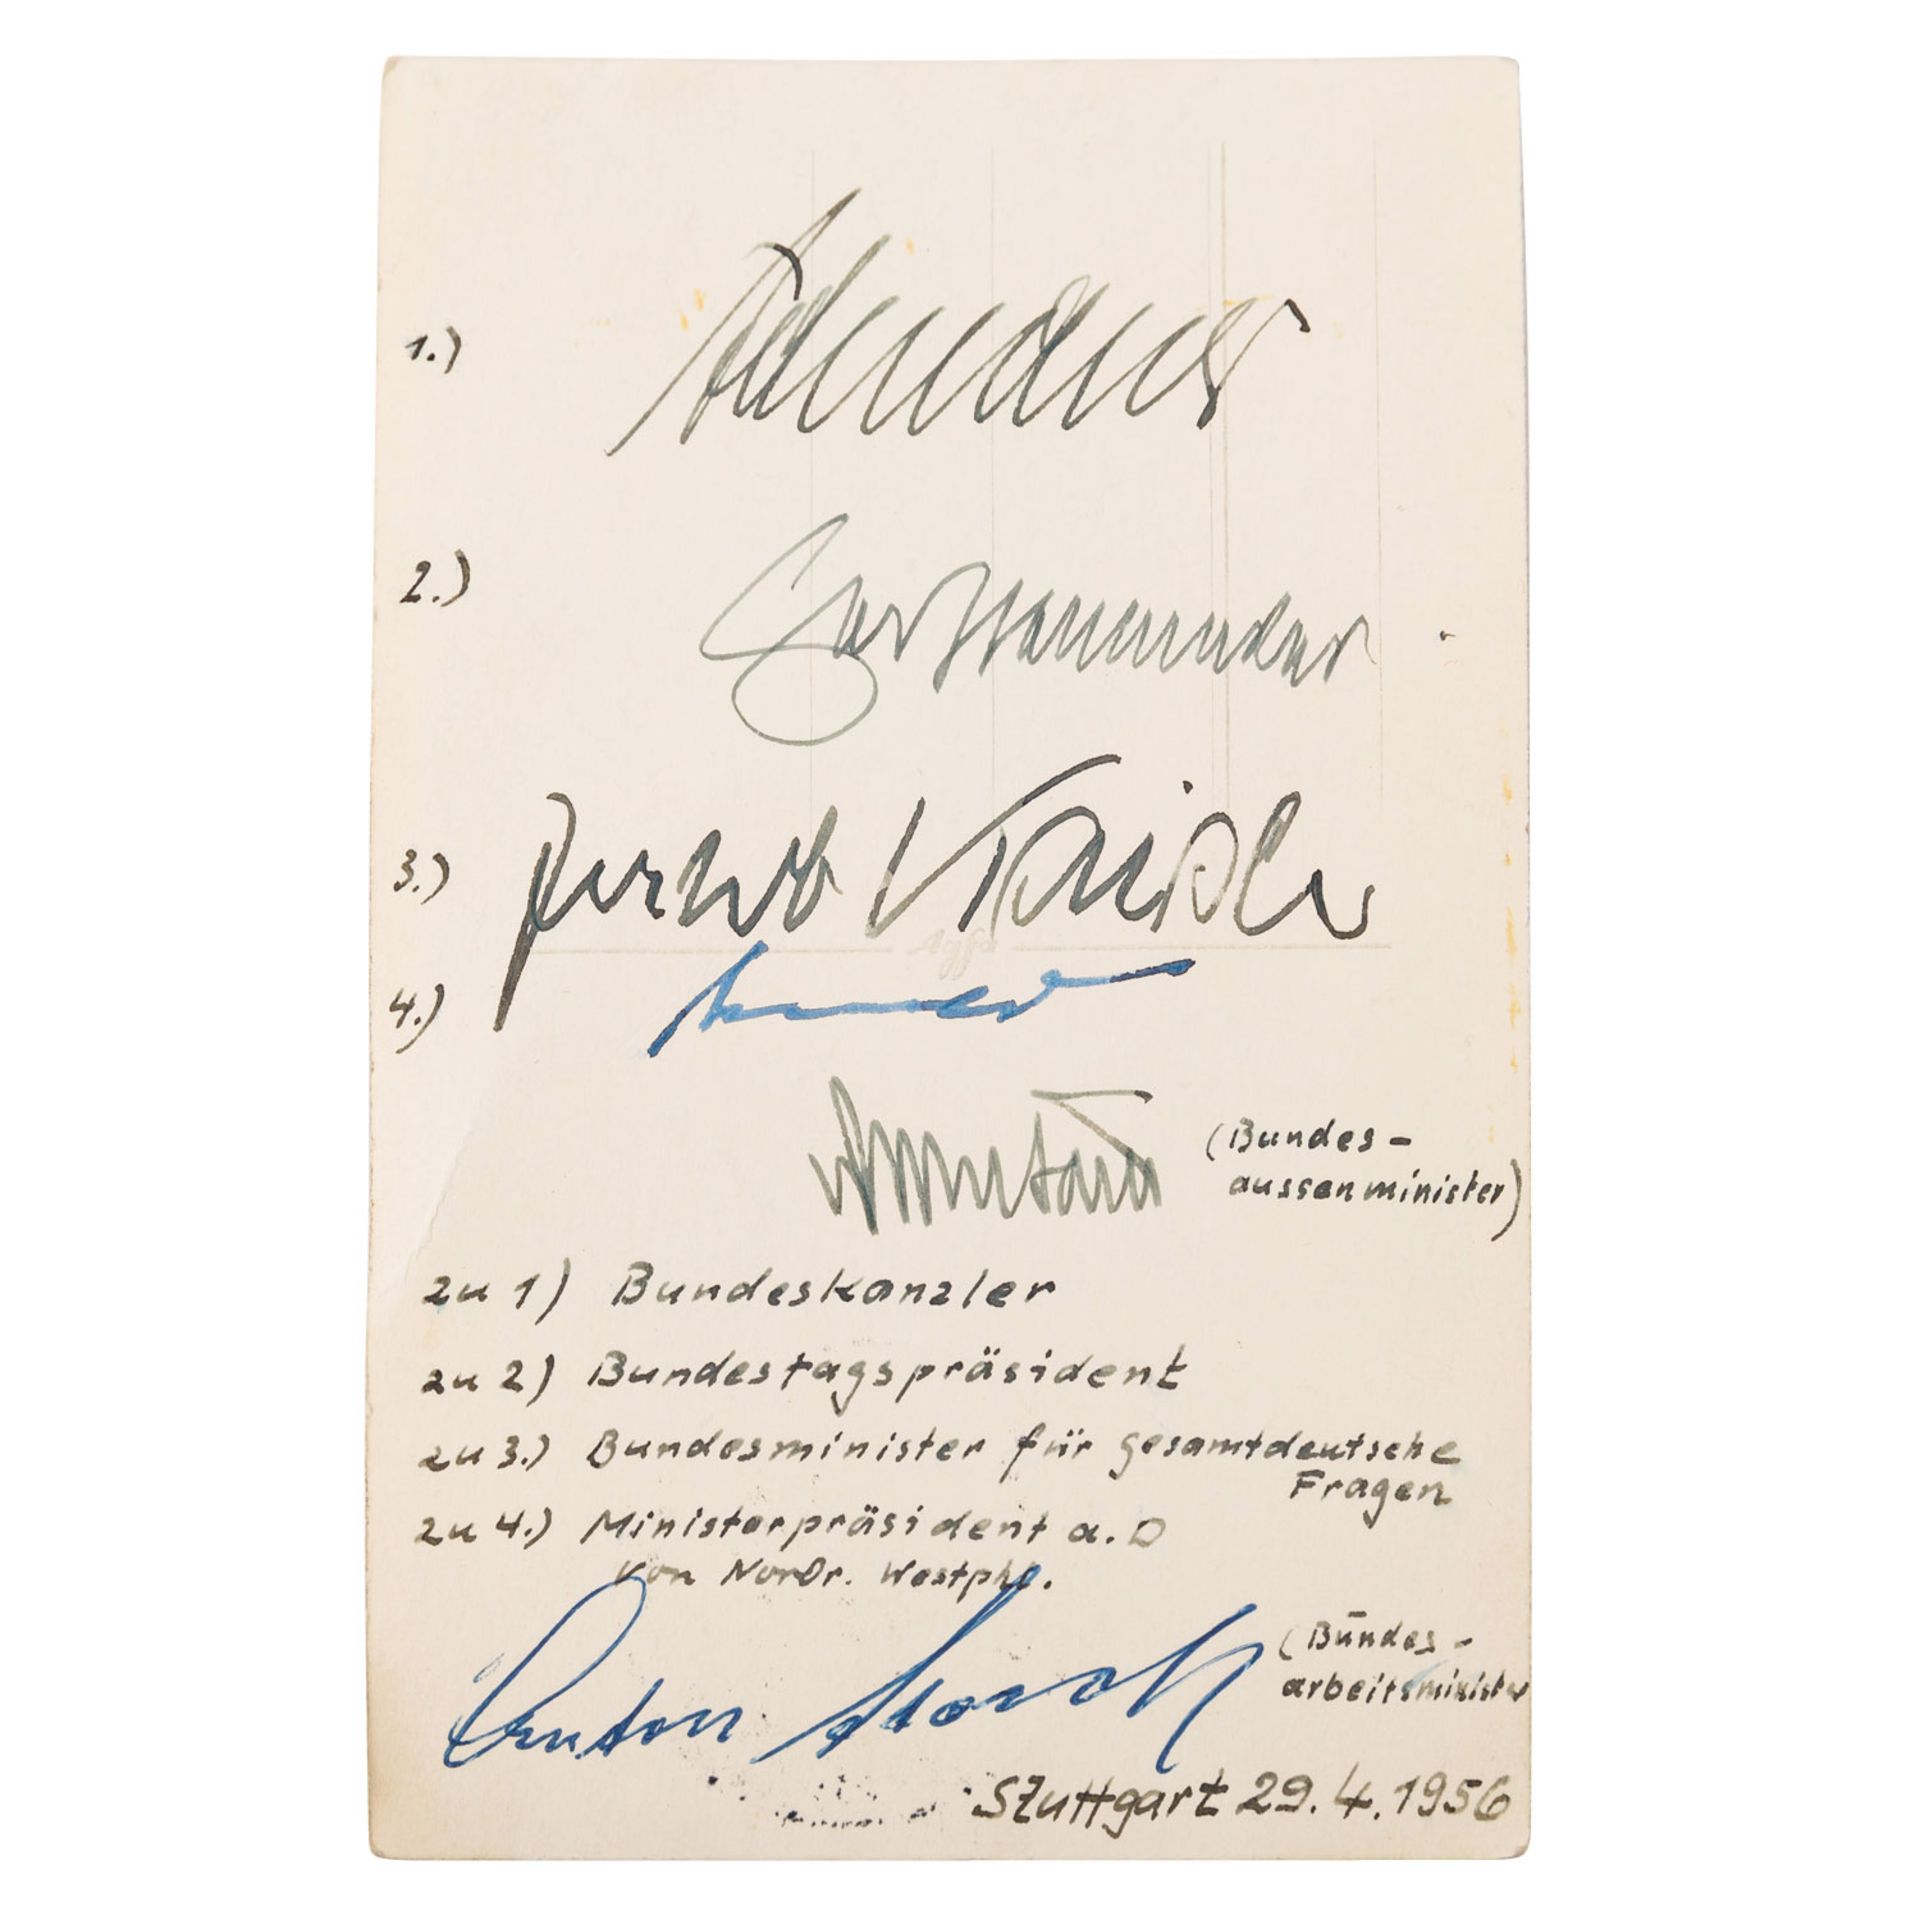 1.) Adenauer
2.) Gerstenmaier
3.) Jakob Kaiser
Agfa
4.) Arnold
vBrentano (Bundes-
aussenminister)
zu 1) Bundeskanzler
zu 2) Bundestagspräsident
zu 3.) Bundesminister für gesamtdeutsche
Fragen
zu 4.) Ministerpräsident a. D
von Nordr. Westphl.
Anton Storch (Bundes-
arbeitsminister
Stuttgart 29.4.1956